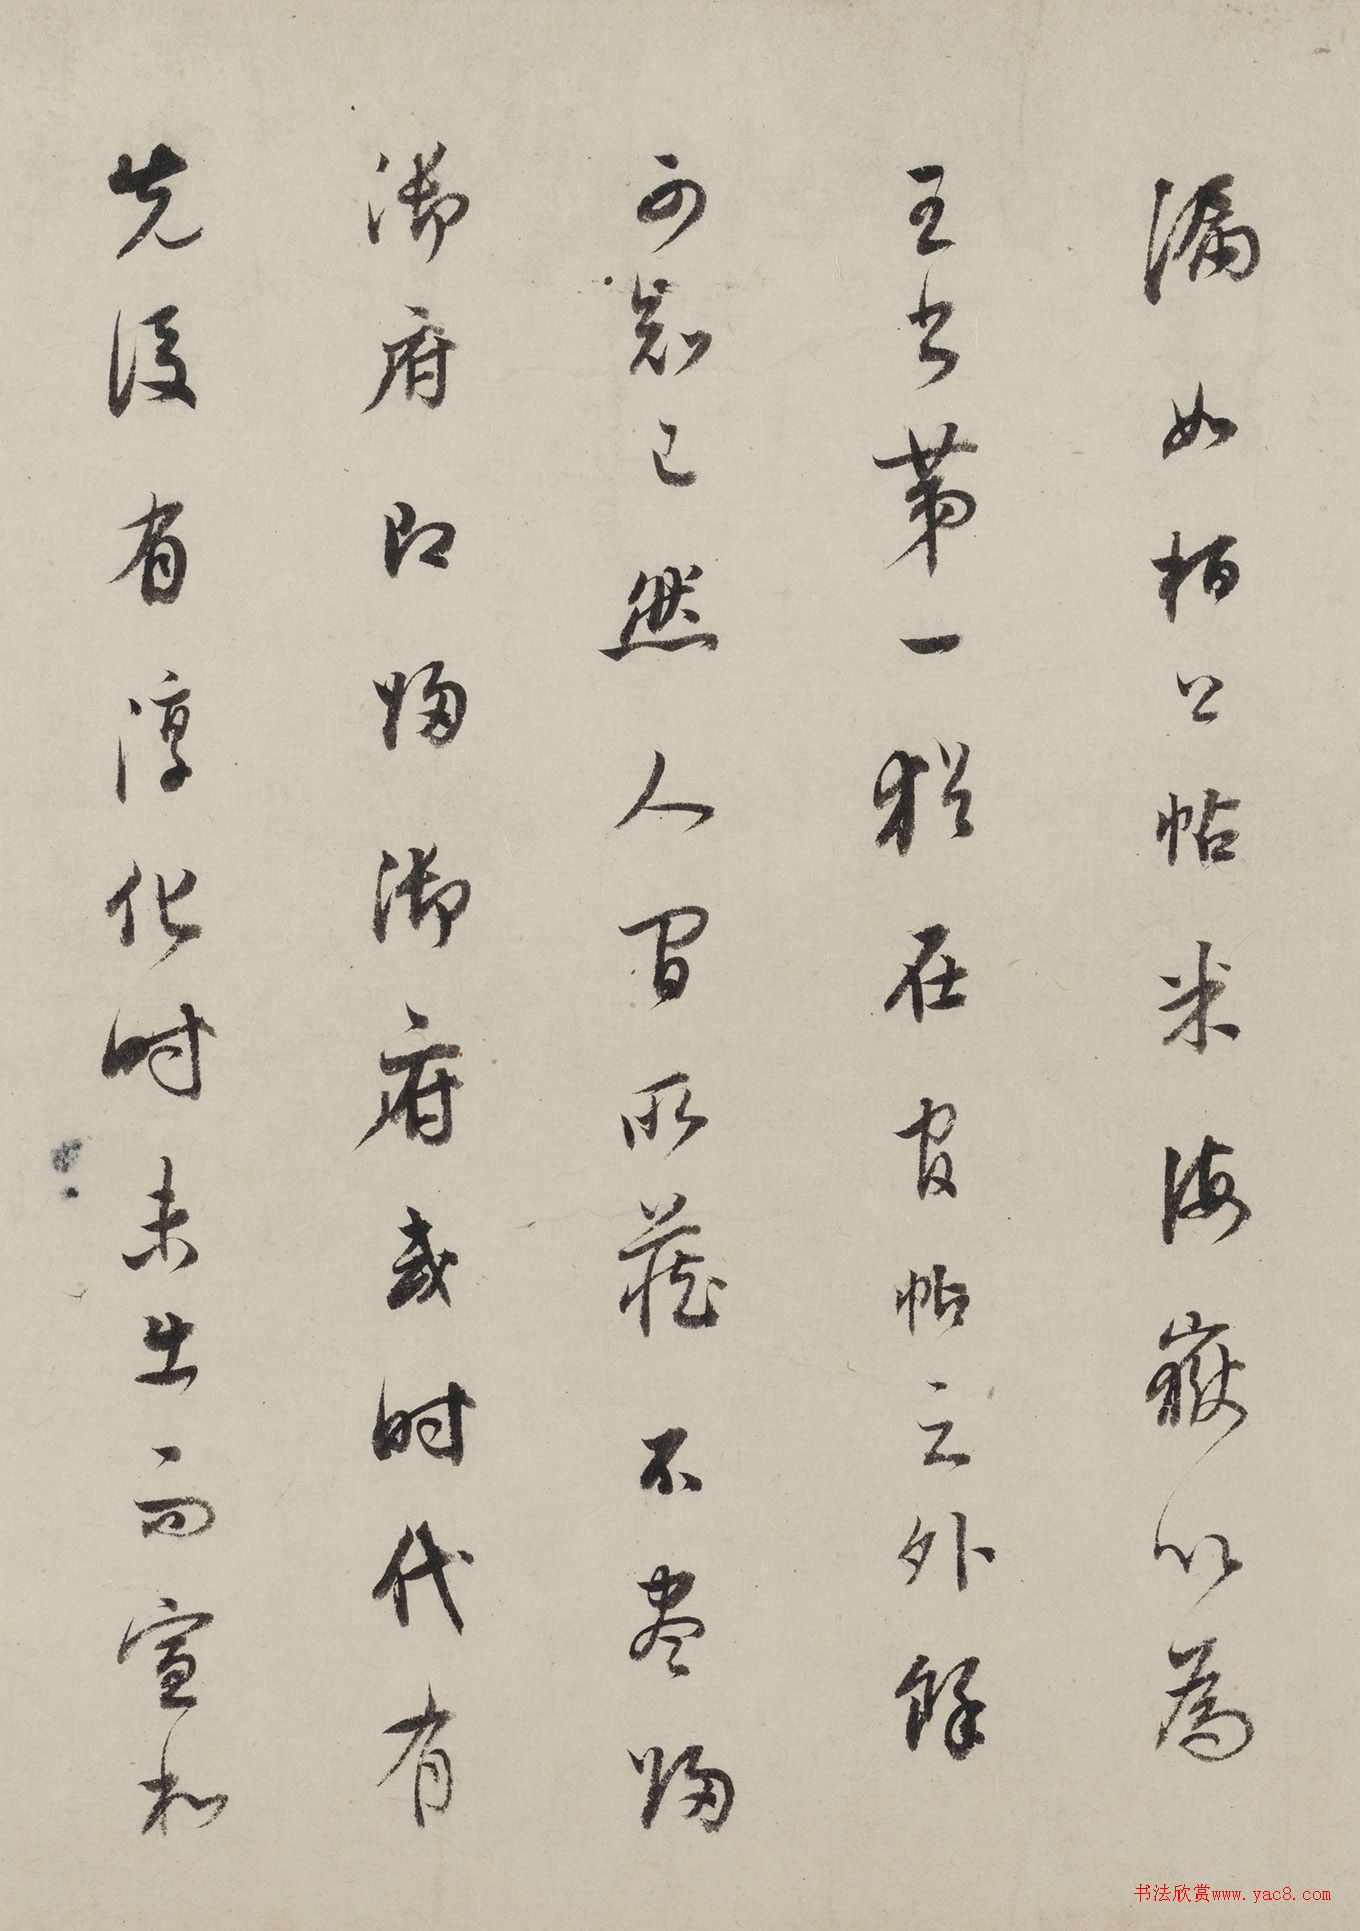 漏如桓公帖米海嶽以為
王書第一猶在官帖之外餘
可知已然人間所藏不盡歸
御府即歸御府或時代有
先後有淳化時未出而宣和
书法欣赏www.yac8.com